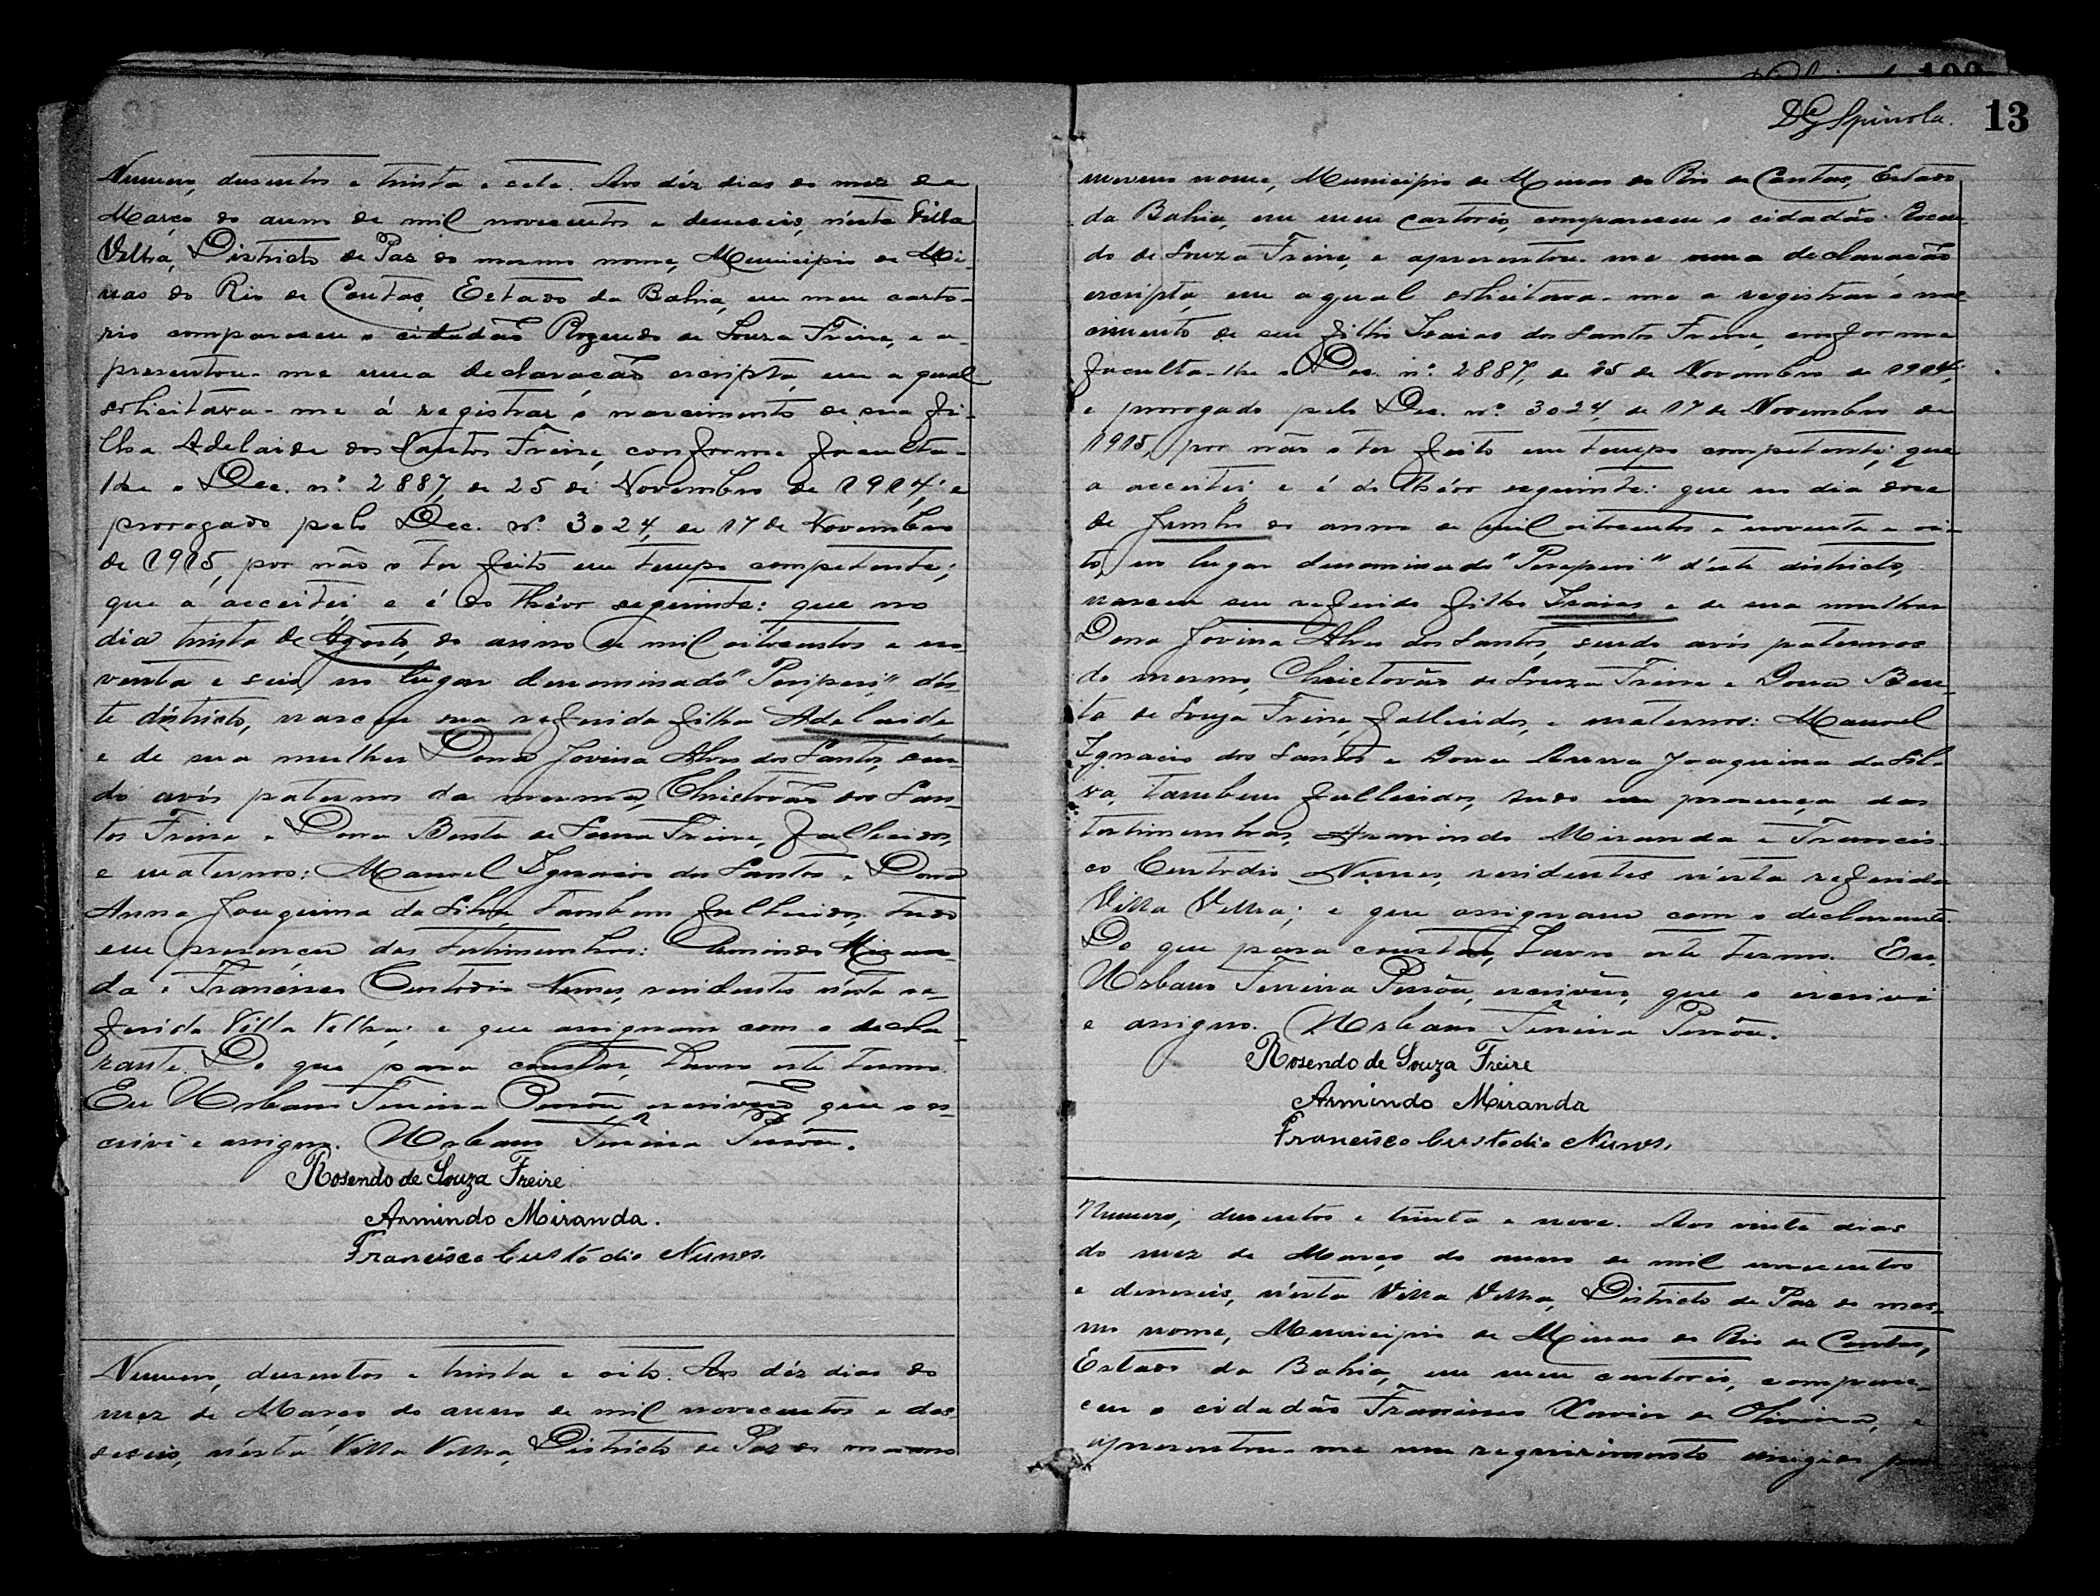 Numero, dusentos e trinta e sete. Aos déz dias do mez de
Março do anno de mil novecentos e deseseis, n'ésta Villa
Velha, Districto de Paz do mesmo nome, Municipio de Mi-
nas do Rio de Contas, Estado da Bahia, em meu carto-
rio compareceu o cidadão Rozendo de Souza Freire, e a-
presentou-me uma declaração escripta, em a qual
solicitava-me á registrar o nascimento de sua fi-
lha Adelaide dos Santos Freire, conforme faculta-
lhe o Dec. nº 2887, de 25 de Novembro de 1914, e
prorogado pelo Dec. nº 3024, de 17 de Novembro
de 1915, por não o ter feito em tempo competente;
que a acceitei e é do théor seguinte: que no
dia trinta de Agosto, do anno de mil oitocentos e no-
venta e seis, no lugar denominado "Periperi", dés-
te districto, nasceu sua referida filha Adelaide,
e de sua mulher Dona Jovina Alves dos Santos, sen-
do avós paternos da mesma, Christovão dos San-
tos Freire e Dona Benta de Souza Freire, fallecidos,
e maternos: Manoel Ignacio dos Santos e Dona
Anna Joaquina da Silva, tambem fallecidos, tudo
em presença das testimunhas: Armindo Miran-
da e Francisco Custodio Nunes, residentes n'ésta re-
ferida Villa Velha; e que assignam com o decla-
rante. Do que para constar, lavro este termo.
Eu Urbano Ferreira Pessôa, escrivão, que o es-
crivi e assigno. Urbano Ferreira Pessôa.
Rosendo de Souza Freire
Armindo Miranda.
Francisco Custódio Nunes.
Numero, dusentos e trinta e oito. Aos déz dias do
mez de Março do anno de mil novecentos e des-
eseis, n'ésta Villa Velha, Districto de Paz do mesmo
Spinola. 13
mesmo nome, Municipio de Minas do Rio de Contas, Estado
da Bahia, em meu cartorio, compareceu o cidadão Rosen-
do de Souza Freire, e apresentou-me uma declaração
escripta, em a qual solicitava-me a registrar o nas-
cimento de seu filho Isaias dos Santos Freire, conforme
faculta-lhe o Dec. nº 2887, de 25 de Novembro de 1914,
e prorogado pelo Dec. nº 3024, de 17 de Novembro de
1915, por não o ter feito em tempo competente; que
a acceitei, e é do théor seguinte: que no dia doze
de Junho do anno de mil oitocentos e noventa e oi-
to, no lugar denominado "Periperi" d'éste districto,
nasceu seu referido filho Isaias e de sua mulher
Dona Jovina Alves dos Santos, sendo avós paternos
do mesmo, Christovão de Souza Freire e Dona Ben-
ta de Souza Freire, fallecidos, e maternos: Manoel
Ignacio dos Santos e Dona Anna Joaquina da Sil-
va, tambem fallecidos, tudo em presença das
testimunhas, Armindo Miranda e Francis-
co Custodio Nunes, residentes n'ésta referida
Villa Velha; e que assignam com o declarante.
Do que para constar, lavro este termo. Eu,
Urbano Ferreira Pessôa, escrivão, que o escrivi
e assigno. Urbano Ferreira Pessôa.
Rosendo de Souza Freire
Armindo Miranda
Francisco Custodio Nunes.
Numero, dusentos e trinta e nove. Aos vinte dias
do mez de Março do anno de mil novecentos
e deseseis, n'ésta Villa Velha, Districto de Paz do mes-
mo nome, Municipio de Minas do Rio de Contas,
Estado da Bahia, em meu cartorio, compare-
ceu o cidadão Xavier de Oliveira, e
apresentou-me um requerimento